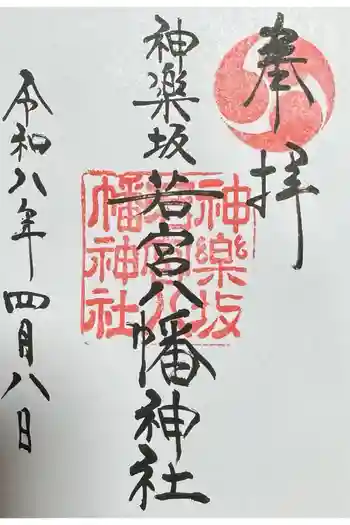 奉拝
神楽坂
若宮八幡神社
神楽坂
若宮八
幡神社
令和八年四月八日